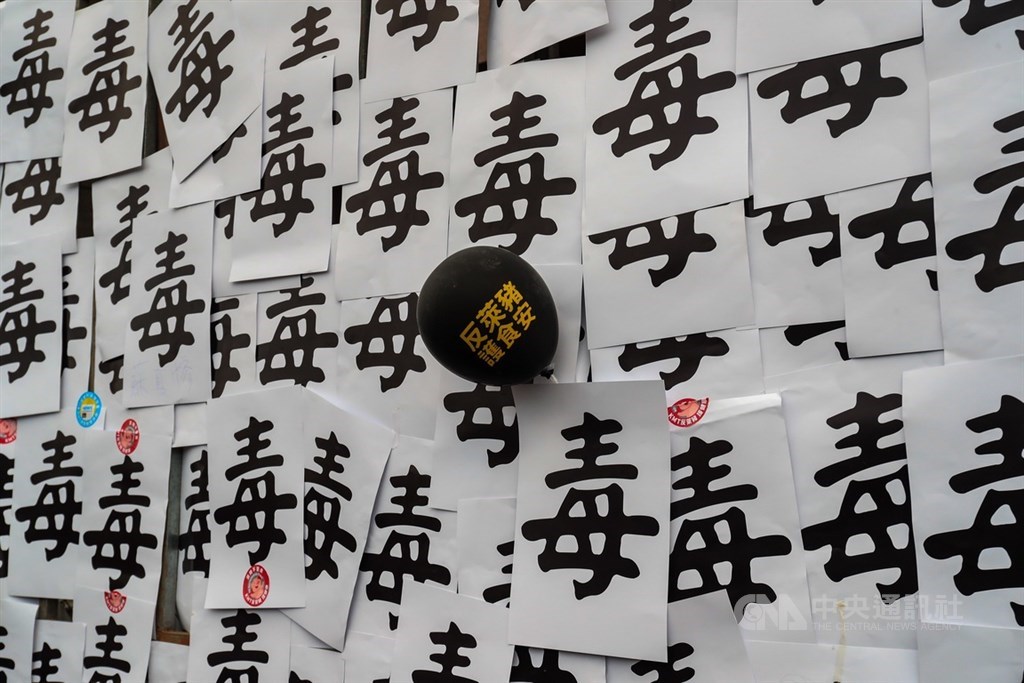 毒 毒 毒 毒 毒
毒 毒 毒 毒 毒
毒 毒 毒 毒 毒 毒
反萊豬
護食安
毒 毒 毒 毒 毒 毒 毒 毒 毒 毒
毒 毒 毒
CNA 中央通訊社
THE CENTRAL NEWS AGENCY